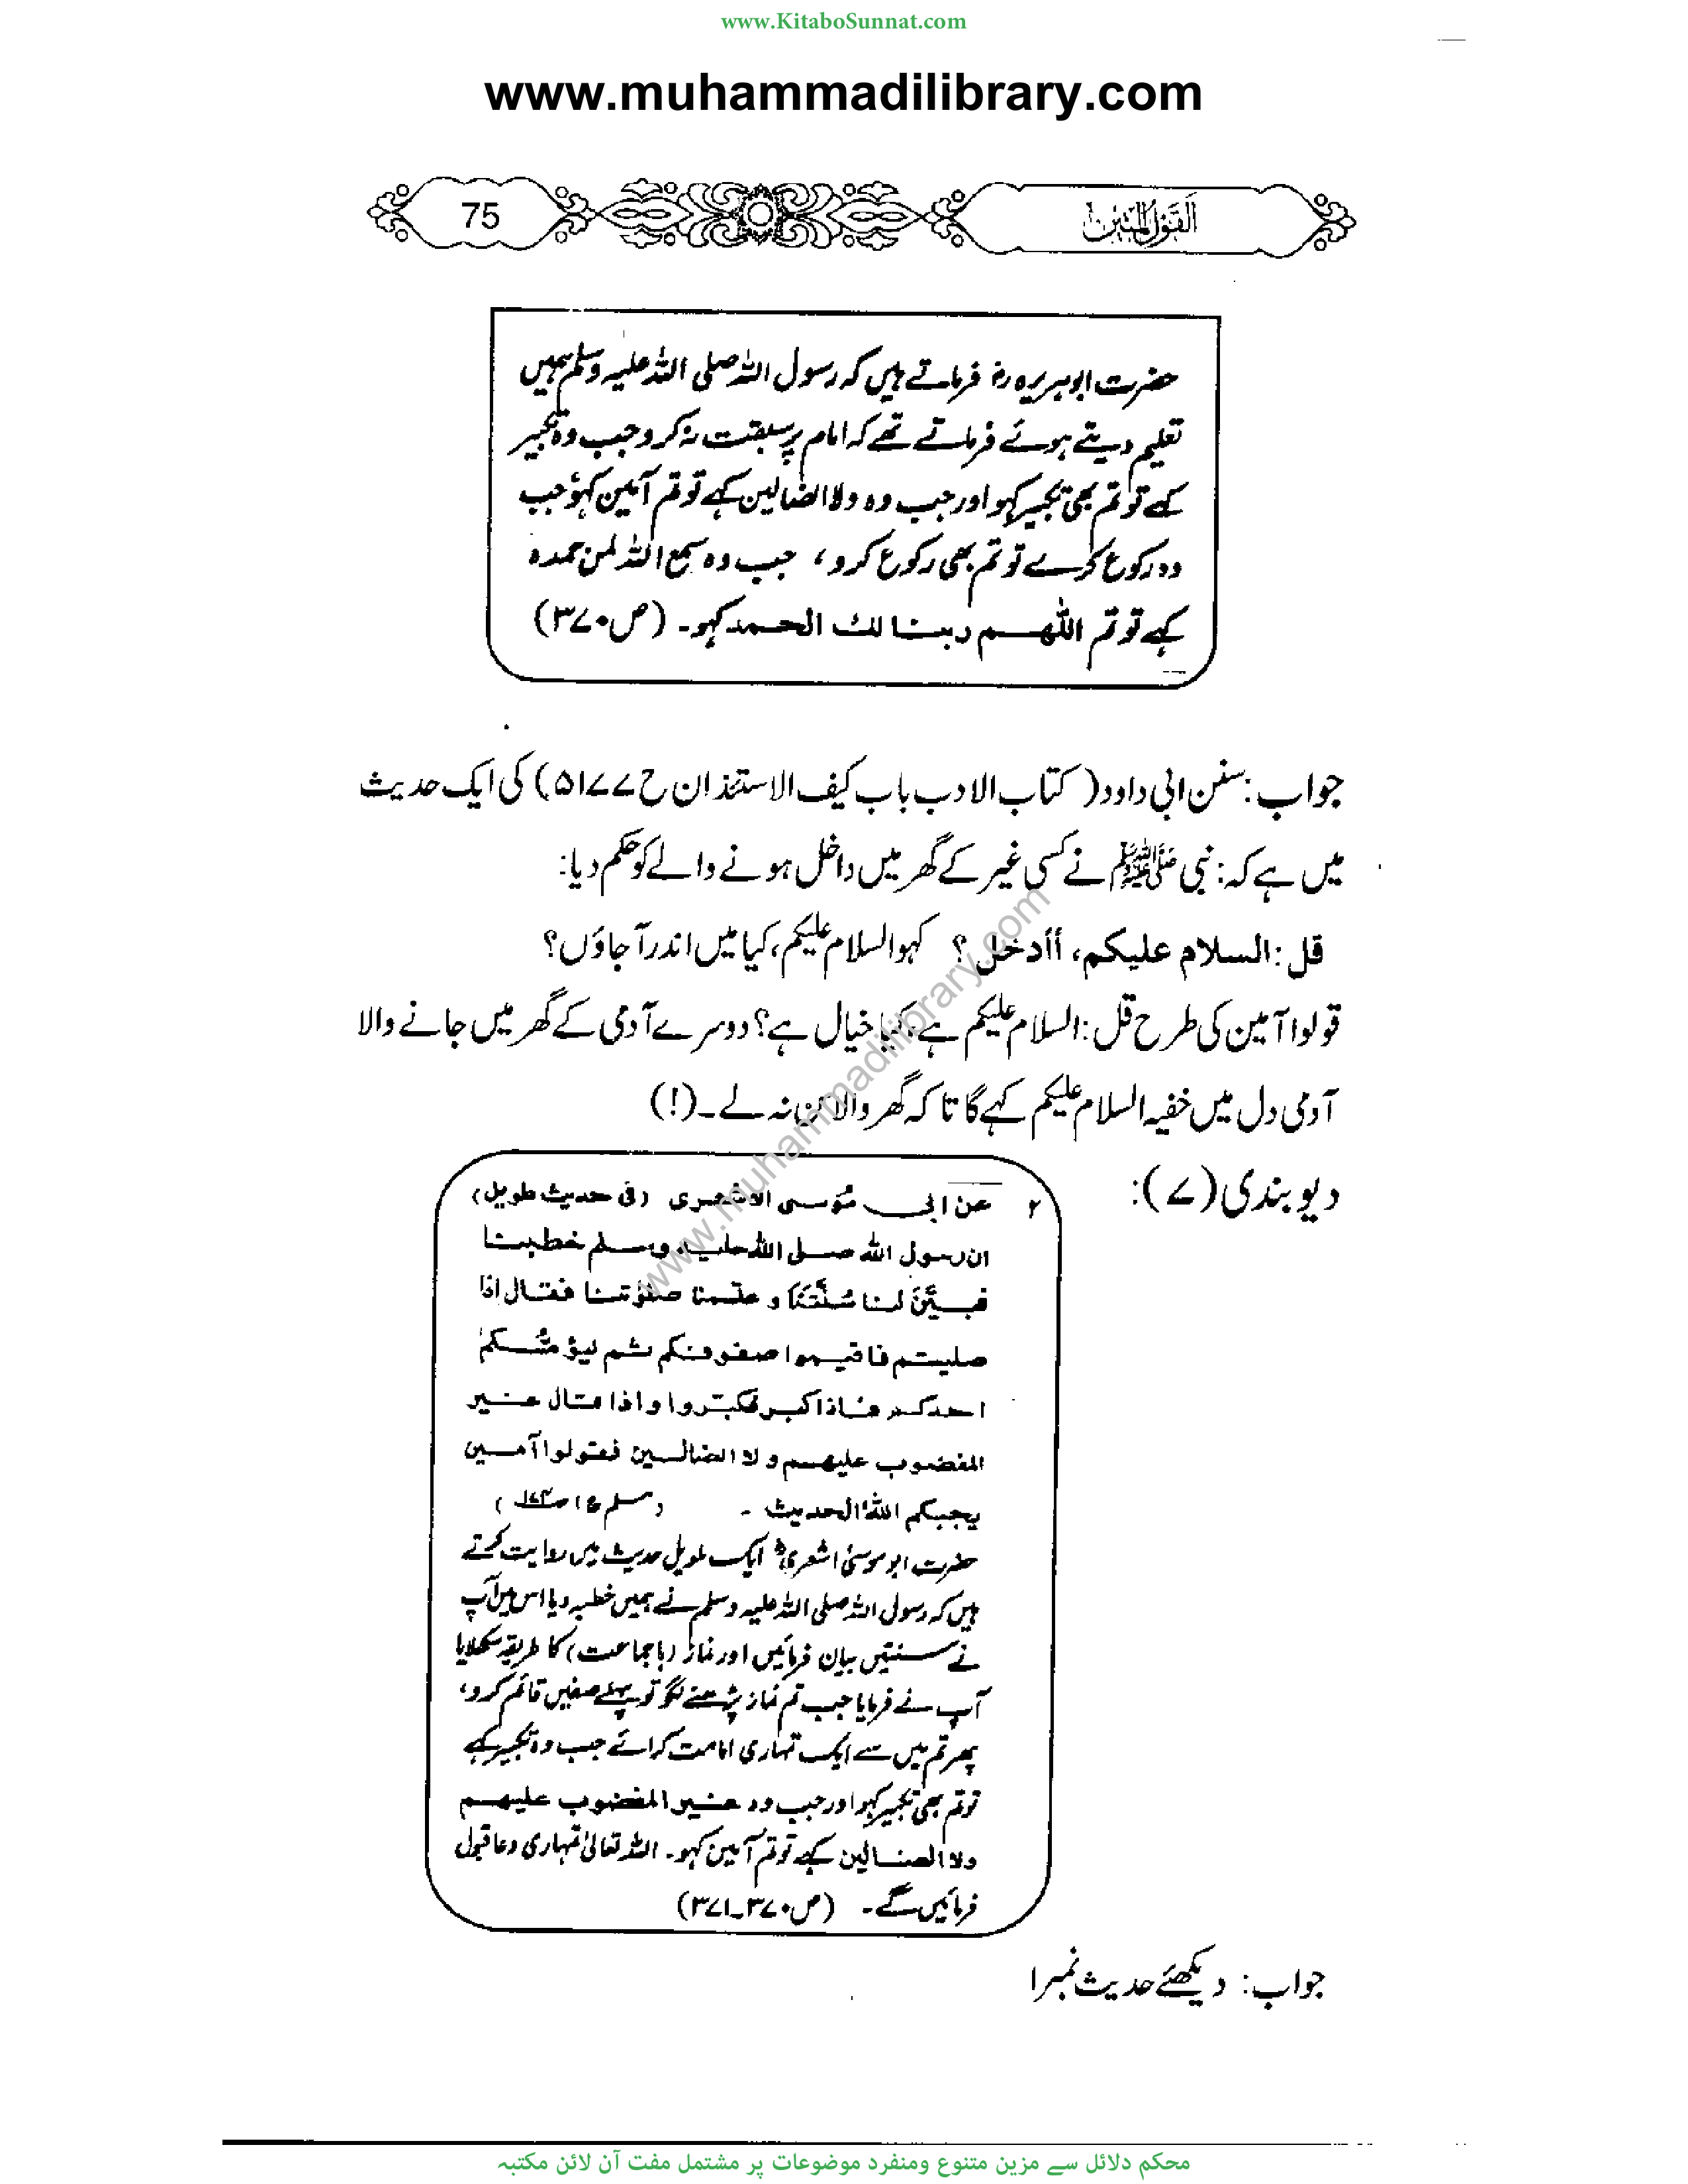 www.KitaboSunnat.com
www.muhammadilibrary.com
75
القول المتین
حضرت ابوہریرہ رضؓ فرماتے ہیں کہ رسول اللہ صلی اللہ علیہ وسلم ہمیں
تعلیم دیتے ہوئے فرماتے تھے کہ امام پر سبقت نہ کرو جب وہ تکبیر
کہے تو تم بھی تکبیر کہو اور جب وہ ولا الضالین کہے تو تم آمین کہو، جب
وہ رکوع کرے تو تم بھی رکوع کرو، جب وہ سمع اللہ لمن حمدہ
کہے تو تم اللھم ربنا لك الحمد کہو۔ (ص ۳۷۰)
جواب: سنن ابی داود (کتاب الادب باب کیف الاستئذان ح ۵۱۷۷) کی ایک حدیث
میں ہے کہ: نبی ﷺ نے کسی غیر کے گھر میں داخل ہونے والے کو حکم دیا:
قل: السلام علیکم، أأدخل؟ کہو السلام علیکم، کیا میں اندر آجاؤں؟
قولوا آمین کی طرح قل: السلام علیکم ہے، کیا خیال ہے؟ دوسرے آدمی کے گھر میں جانے والا
آدمی دل میں خفیہ السلام علیکم کہے گا تاکہ گھر والا سن نہ لے۔ (!)
دیوبندی (۷):
۲ عن ابی موسی الاشعری (فی حدیث طویل)
ان رسول اللہ صلی اللہ علیہ وسلم خطبنا
فبیّن لنا سُنَّتَنا و علّمنا صلوٰتنا فقال اذا
صلیتم فاقیموا صفوفکم ثم لیؤمّکم
احدکم فاذا کبر فکبّروا واذا قال غیر
المغضوب علیھم ولا الضالین فقولوا آمین
یجبکم اللہ الحدیث۔ (مسلم ج۱ ص۱۷۴)
حضرت ابو موسیٰ اشعریؓ ایک طویل حدیث میں روایت کرتے
ہیں کہ رسول اللہ صلی اللہ علیہ وسلم نے ہمیں خطبہ دیا اس میں آپ
نے سنتیں بیان فرمائیں اور نماز (باجماعت) کا طریقہ سکھلایا
آپ نے فرمایا جب تم نماز پڑھنے لگو تو پہلے صفیں قائم کرو،
پھر تم میں سے ایک تمہاری امامت کرائے جب وہ تکبیر کہے
تو تم بھی تکبیر کہو اور جب وہ غیر المغضوب علیھم
ولا الضالین کہے تو تم آمین کہو۔ اللہ تعالیٰ تمہاری دعا قبول
فرمائیں گے۔ (ص ۳۷۰۔۳۷۱)
جواب: دیکھئے حدیث نمبر ۱
www.muhammadilibrary.com
محکم دلائل سے مزین متنوع ومنفرد موضوعات پر مشتمل مفت آن لائن مکتبہ